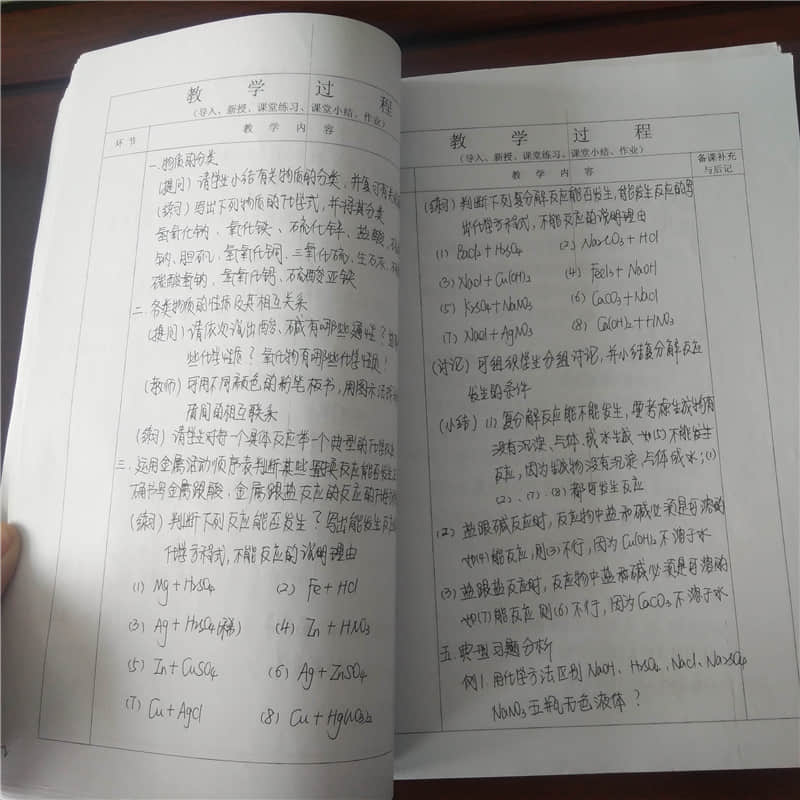 教 学 过 程
(导入、新授、课堂练习、课堂小结、作业)
环 节
教 学 内 容
一.物质的分类
(提问) 请学生小结有关物质的分类,并复习有关
(练习) 写出下列物质的化学式,并将其分类
氢氧化钠、氧化铁、石硫化锌、盐酸、
钠、胆矾、氢氧化铜、三氧化硫、生石灰、
碳酸氢钠、氢氧化钙、石硫酸亚铁
二.各类物质的性质及其相互关系
(提问) 请依次说出酸、碱有哪些通性?
些化学性质?氧化物有哪些化学性质!
(教师) 可用不同颜色的粉笔板书,用图示法
质间的相互联系
(练习) 请学生对每一个具体反应举一个典型的化学
三.运用金属活动顺序表判断某些置换反应能否发生
确书写金属跟酸,金属跟盐反应的反应的化学
(练习) 判断下列反应能否发生?写出能发生反应
化学方程式,不能反应的说明理由
(1) Mg+H2SO4 (2) Fe+HCl
(3) Ag+H2SO4(稀) (4) Zn+HNO3
(5) Zn+CuSO4 (6) Ag+ZnSO4
(7) Cu+AgCl (8) Cu+Hg(NO3)2
教 学 过 程
(导入、新授、课堂练习、课堂小结、作业)
教 学 内 容
备课补充
与后记
(练习) 判断下列复分解反应能否发生,能发生反应的写
出化学方程式,不能反应的说明理由
(1) BaCl2+H2SO4 (2) Na2CO3+HCl
(3) NaCl+Cu(OH)2 (4) FeCl3+NaOH
(5) K2SO4+NaNO3 (6) CaCO3+NaCl
(7) NaCl+AgNO3 (8) Ca(OH)2+HNO3
(讨论) 可组织学生分组讨论,并小结复分解反应
发生的条件
(小结) (1) 复分解反应能不能发生,要考虑生成物有
没有沉淀、气体、或水生成 如(5)不能发生
反应,因为生成物没有沉淀、气体或水;(1)
(2)、(7)、(8)都可发生反应
(2) 盐跟碱反应时,反应物中盐和碱必须是可溶的
如(4)能反应,则(3)不行,因为Cu(OH)2不溶于水
(3) 盐跟盐反应时,反应物中盐和碱必须是可溶的
如(7)能反应 则(6)不行,因为CaCO3不溶于水
五.典型习题分析
例1.用化学方法区别NaOH、H2SO4、NaCl、Na2SO4
NaNO3五瓶无色液体?